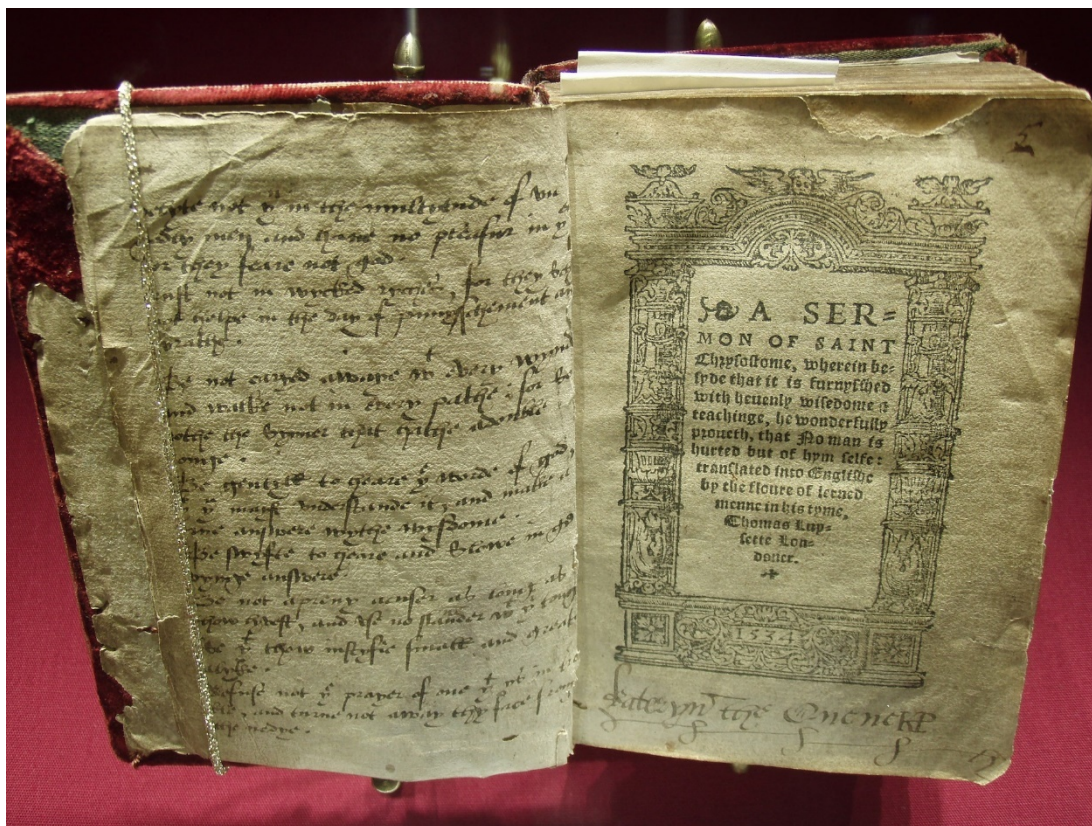 not yͤ in the multytude of vn
godly men and haue no pleasur in y
for they feare not god.
trust not in wycked ryches, for they
helpe in the day of punysshement an
wrathe.
Be not caryed awaye wͭ every wynd
and walke not in every pathe: for so
dothe the synner that hathe a double
tonge.
Be gentyll to heare yͤ worde of god
yͭ yͧ mayst vnderstande it, and make
true answere wythe wysdome.
Be swyfte to heare and slowe in ge
vynge answere.
Be not a preuy accuser as long as
thow lyvest, and vse no slander wͭ yͥ tong
Se yͭ thow iustyfie small and great
alyke.
Refuse not yͤ prayer of one yͭ ys in tro
ble, and turne not away thy face from
the nedye.
A SER=
MON OF SAINT
Chrysostome, wherein be=
syde that it is furnysshed
with heuenly wisedome ⁊
teachinge, he wonderfully
proueth, that No man is
hurted but of hym selfe:
translated into Englishe
by the floure of lerned
menne in his tyme,
Thomas Lup=
sette Lon=
doner.
1534
Kateryn the Quene KP